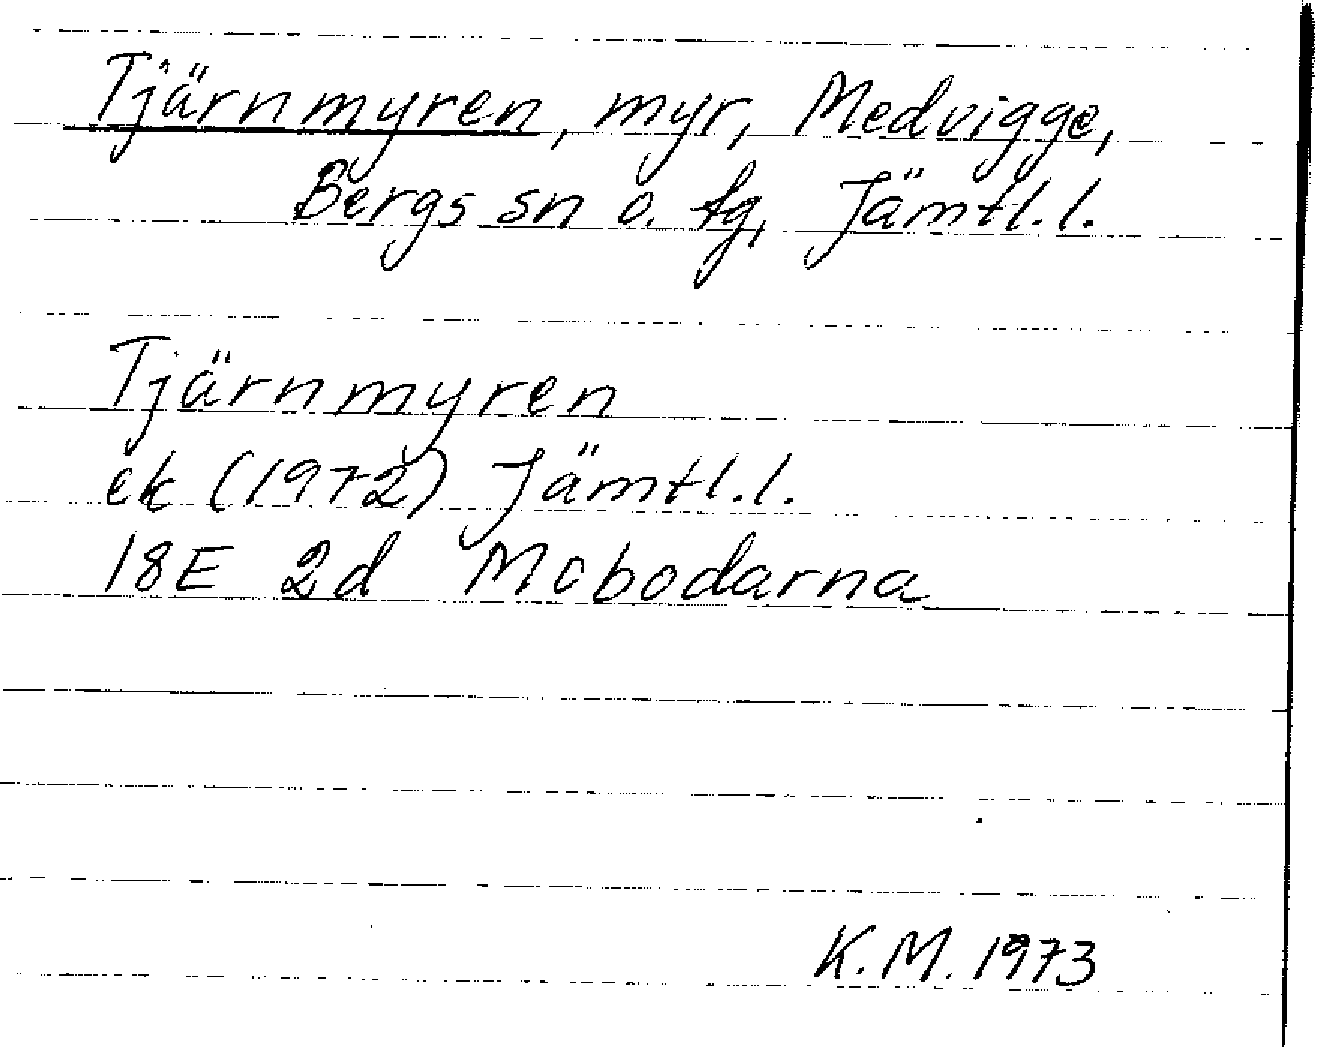 Tjärnmyren, myr, Medvigge,
Bergs sn o. tg, Jämtl.l.
Tjärnmyren
ek (1972) Jämtl.l.
18E 2d Mobodarna
K.M. 1973